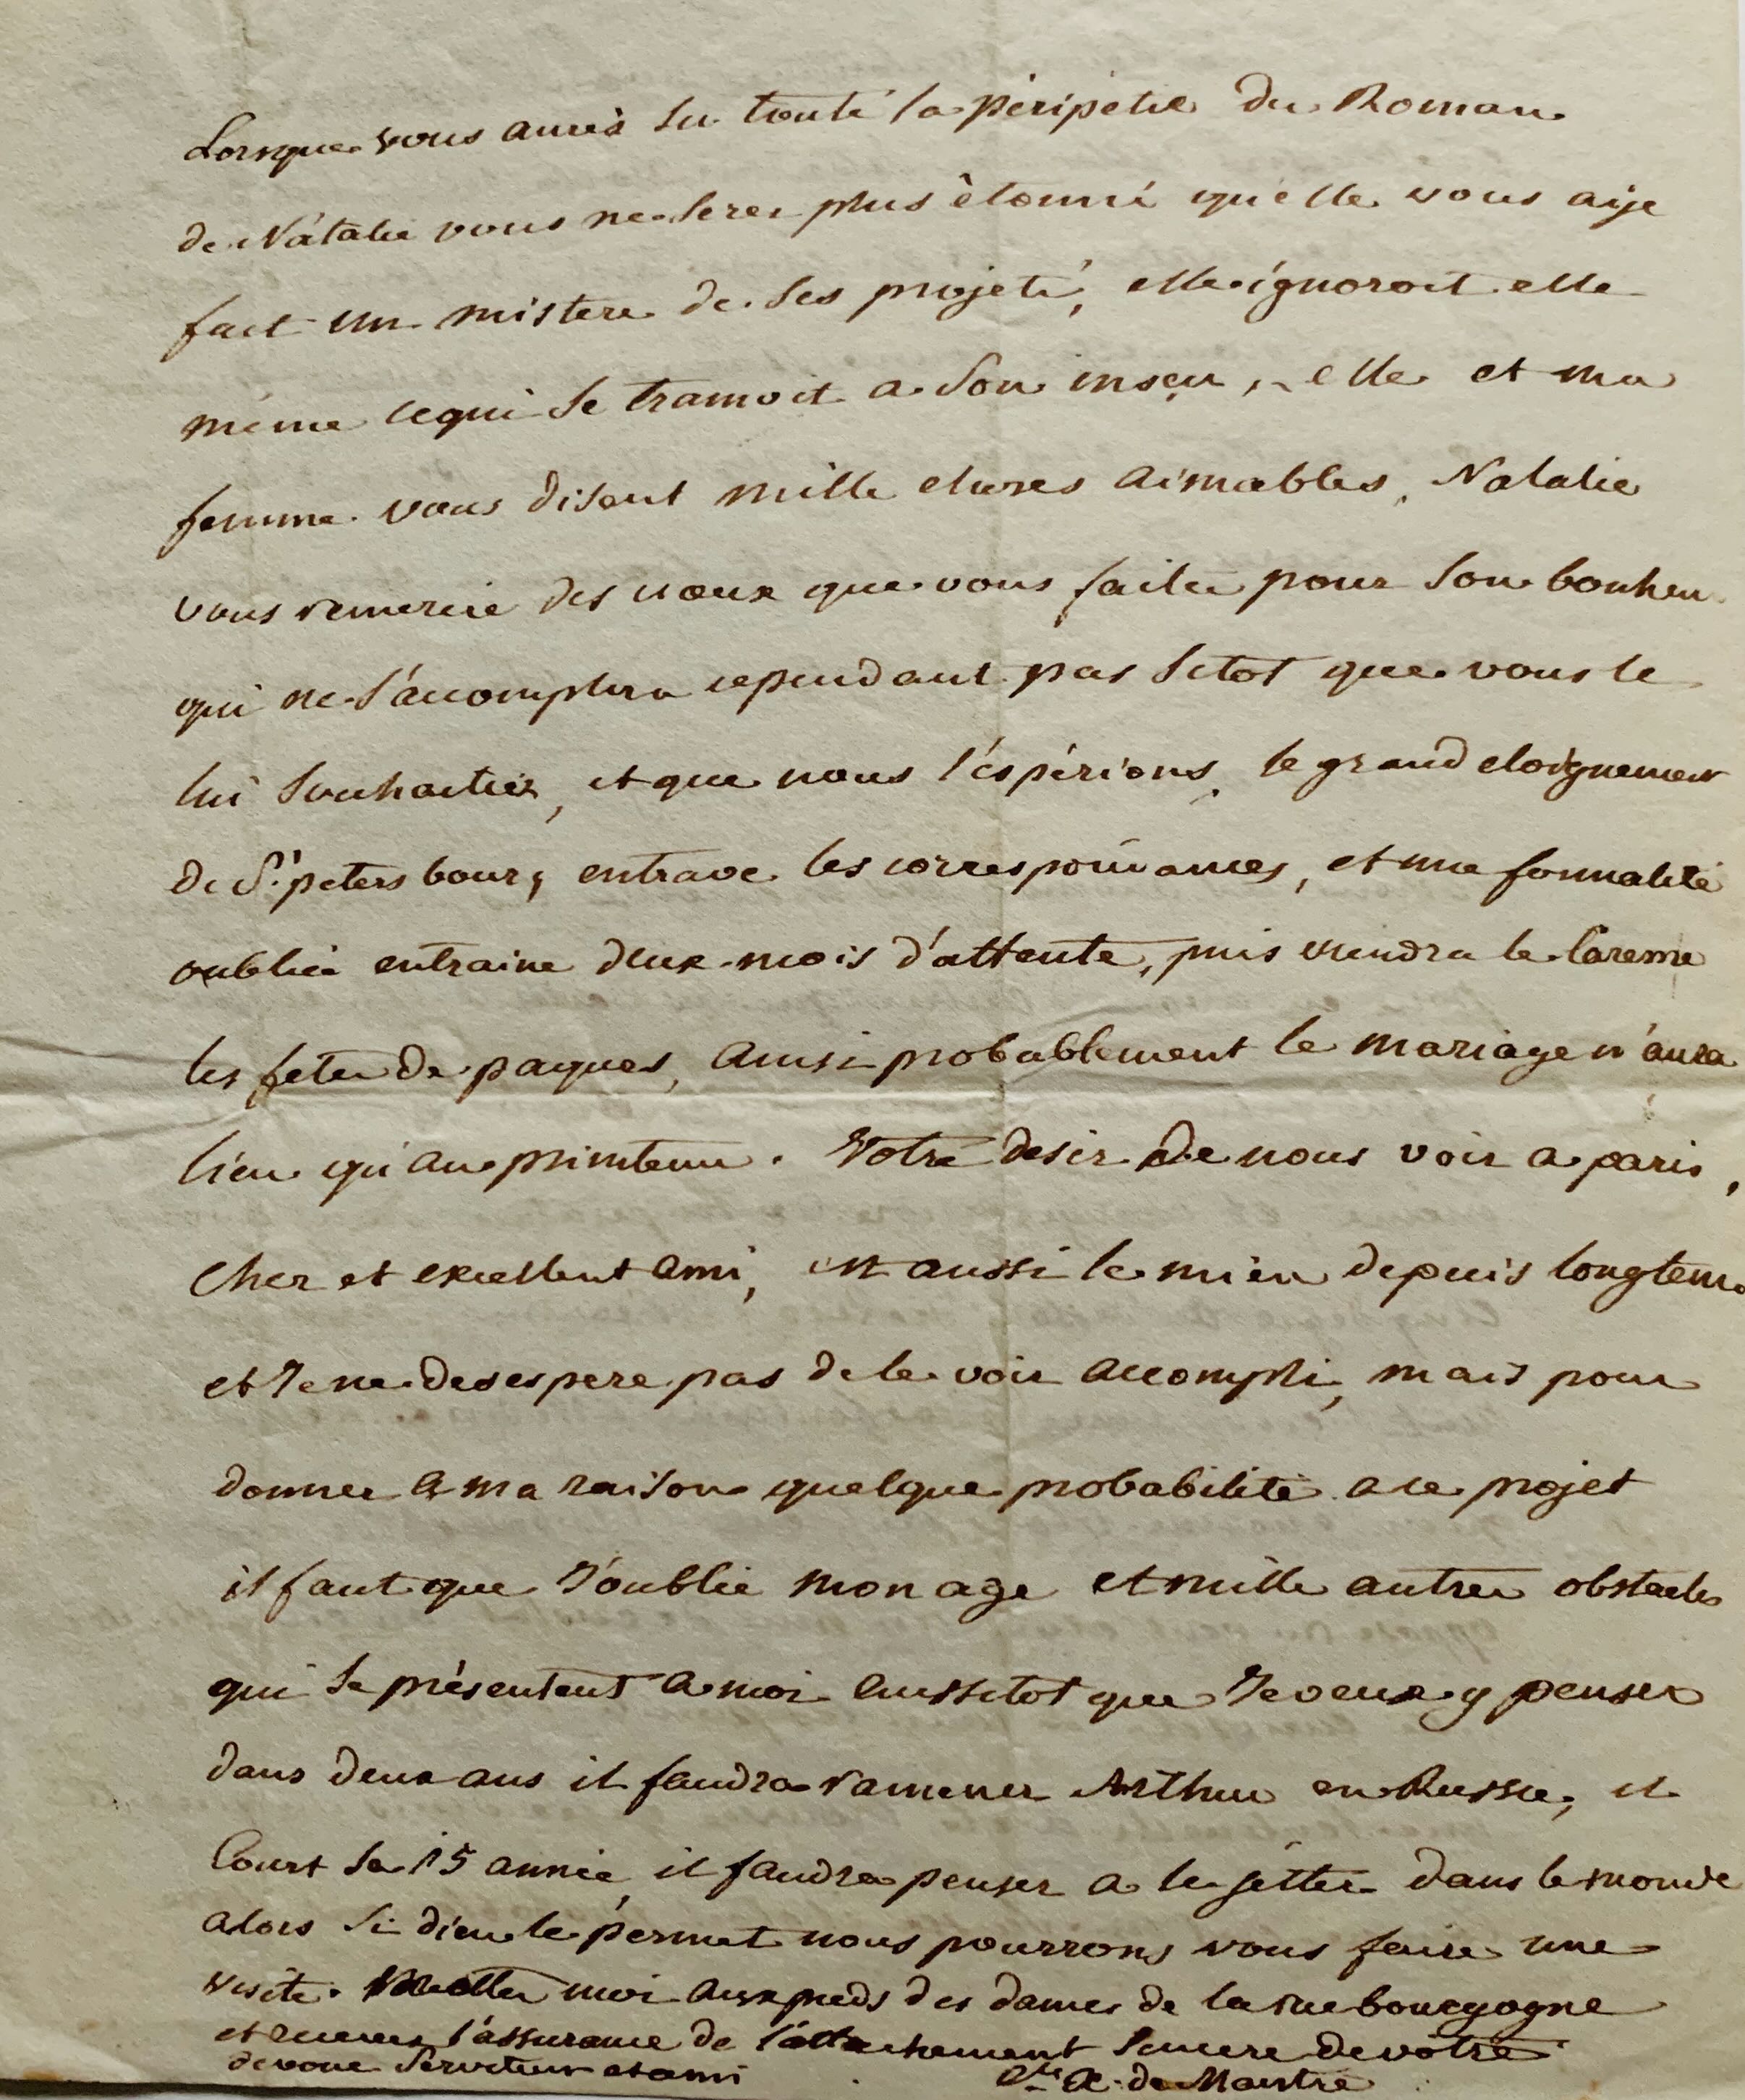 Lorsque vous aurés su toute la péripetie du Roman
de Natalie vous ne serez plus étonné qu'elle vous aije
fait un mistere de ses projets, elle ignoroit elle
même cequi se tramoit a son insçu, elle et ma
femme vous disent mille choses aimables, Natalie
vous remercie des vœux que vous faites pour son bonheur
qui ne s'accomplira cependant pas sitot que vous le
lui souhaitiéz, et que nous l'éspérions. le grand eloignement
de St. petersbourg entrave les correspondances, et une formalité
oubliée entraine deux mois d'attente, puis viendra le Careme
les fetes de paques, ainsi probablement le mariage n'aura
lieu qu'au printems. Votre desir de nous voir a paris,
cher et excellent ami, est aussi le mien depuis longtems
et Je ne desespere pas de le voir accompli, mais pour
donner a ma raison quelque probabilité a ce projet
il faut que J'oublie mon age et mille autres obstacles
qui se présentent a moi aussitot que Je veux y penser
dans deux ans il faudra ramener Arthur en Russie, il
Court sa 15 année, il faudra penser a le jetter dans le monde
alors si dieu le permet nous pourrons vous faire une
visite. Mettez moi aux pieds des dames de la rue bourgogne
et recevez l'assurance de l'attachement sincere de votre
devoué serviteur et ami Cte X. de Maistre